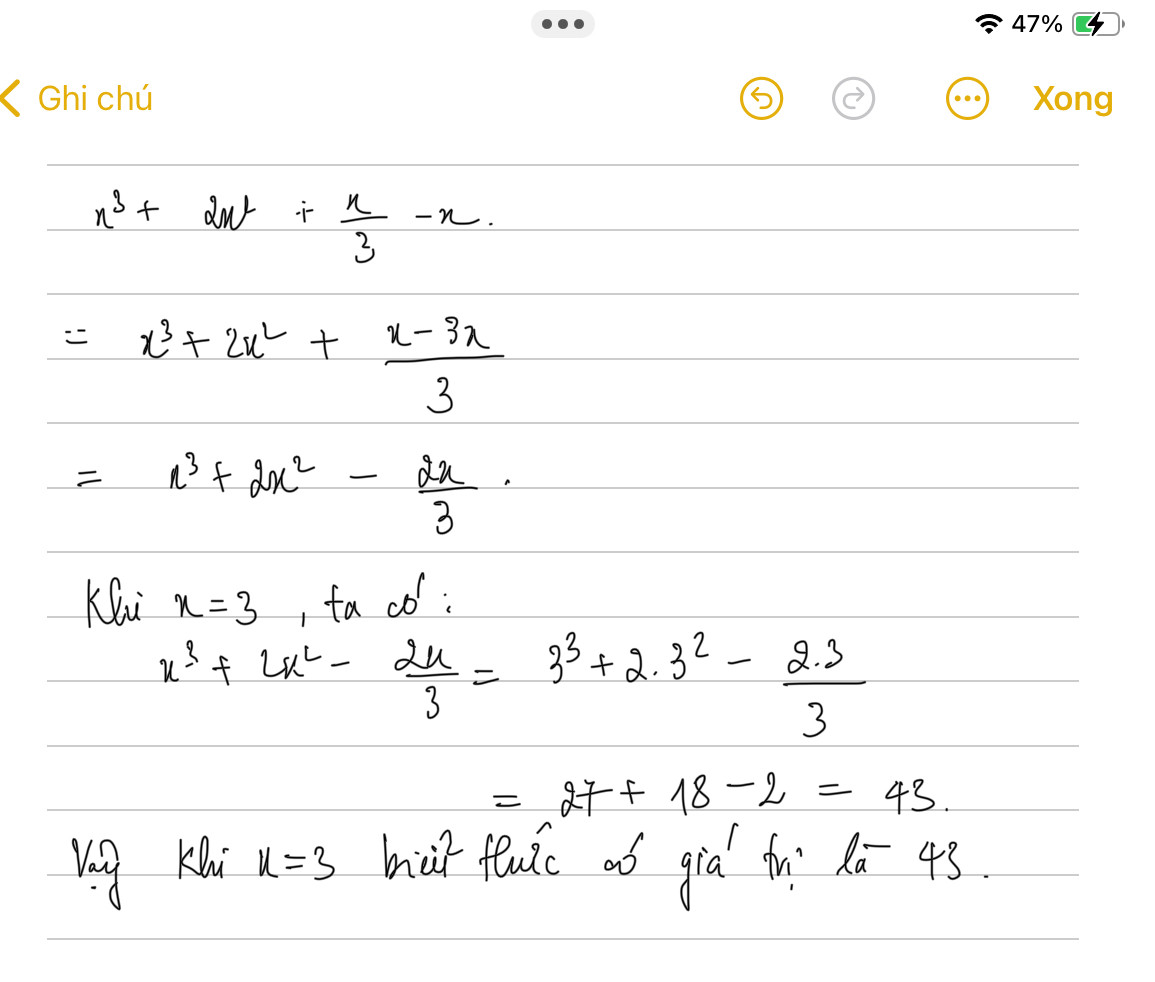 47%
Ghi chú
Xong
x³ + 2x² + x/3 - x.
= x³ + 2x² + (x - 3x)/3
= x³ + 2x² - 2x/3 .
Khi x = 3 , ta có :
x³ + 2x² - 2x/3 = 3³ + 2.3² - 2.3/3
= 27 + 18 - 2 = 43.
Vậy khi x = 3 biểu thức có giá trị là 43 .